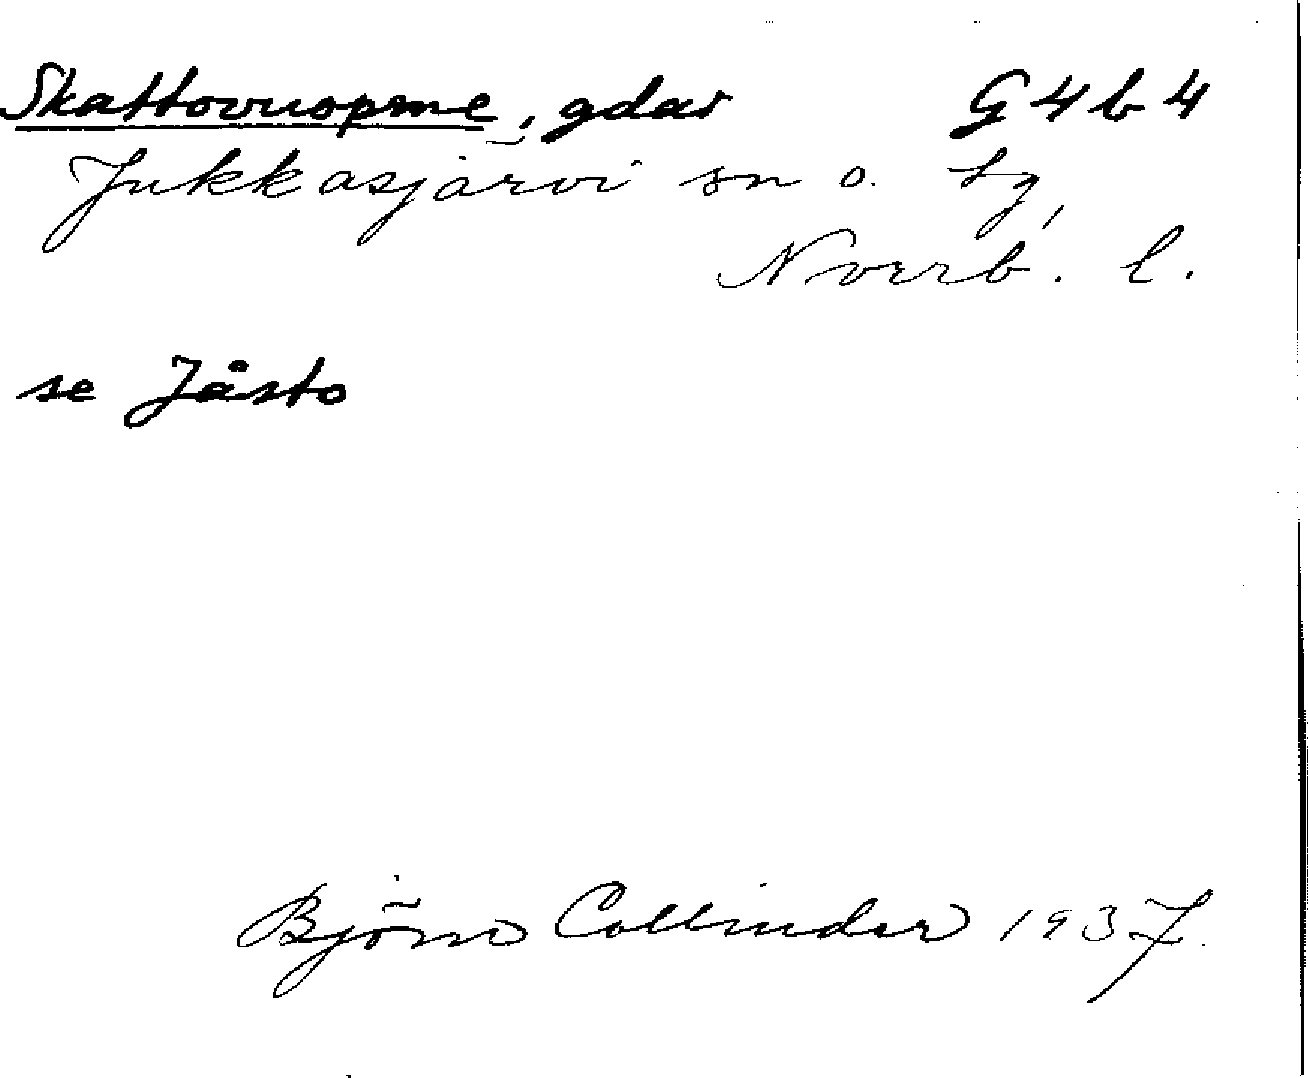 Skattovuopme, gdar G4b4
Jukkasjärvi sn o. tg,
Norrb. l.
se Jåsto
Björn Collinder 1937.